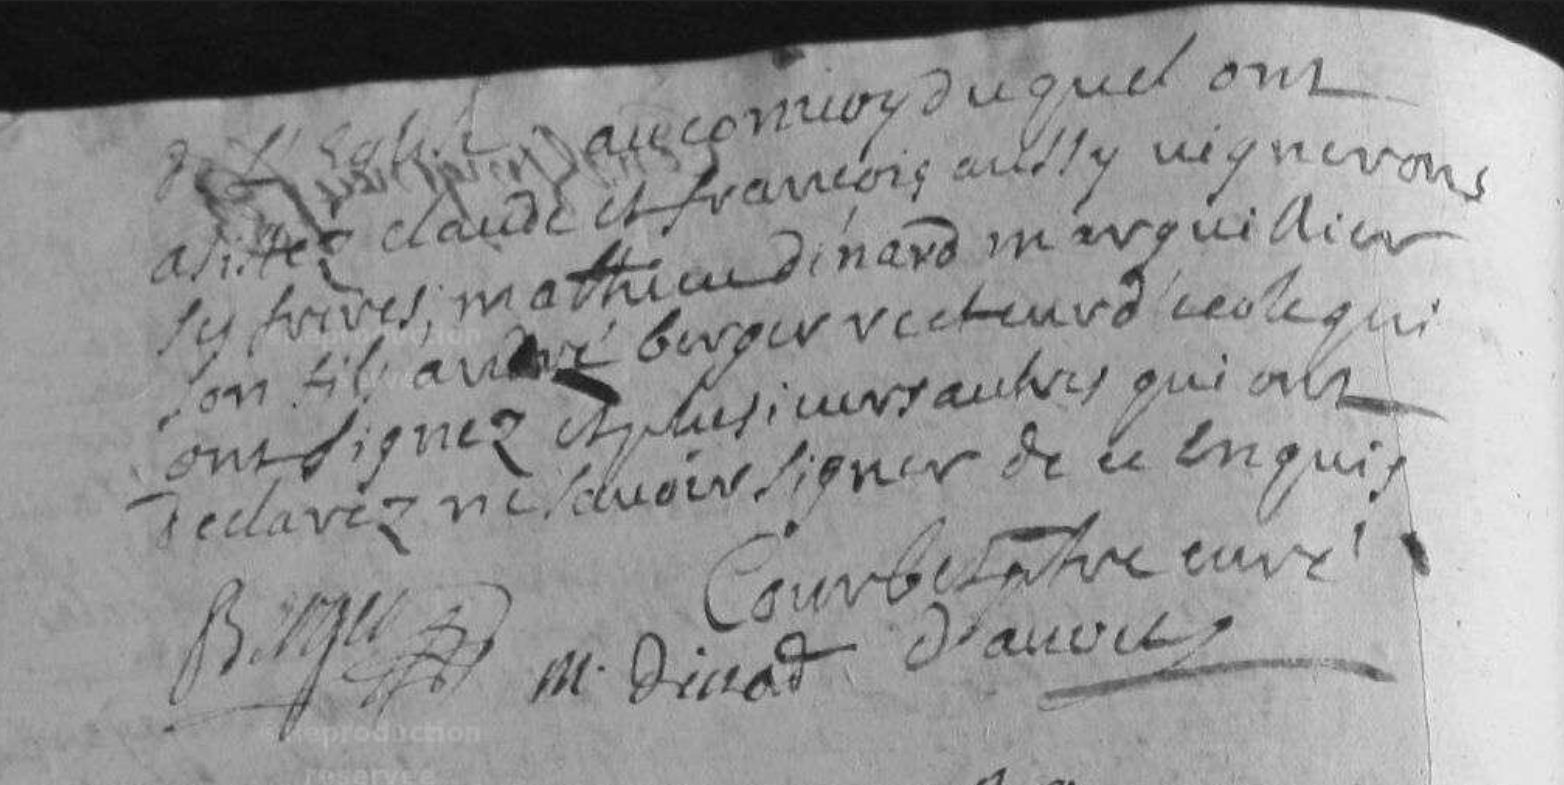 de L'Eglise au convoy duquel ont
assistez claude et francois aussy vignerons
ses freres, mathieu dinard marguillier
son fils andré berger recteur d'ecole qui
ont signez et plusieurs autres qui ont
declarez ne savoir signer de ce Enquis
Courbet ptre curé
Berger M. Dinad d'avot
Reproduction
reservee